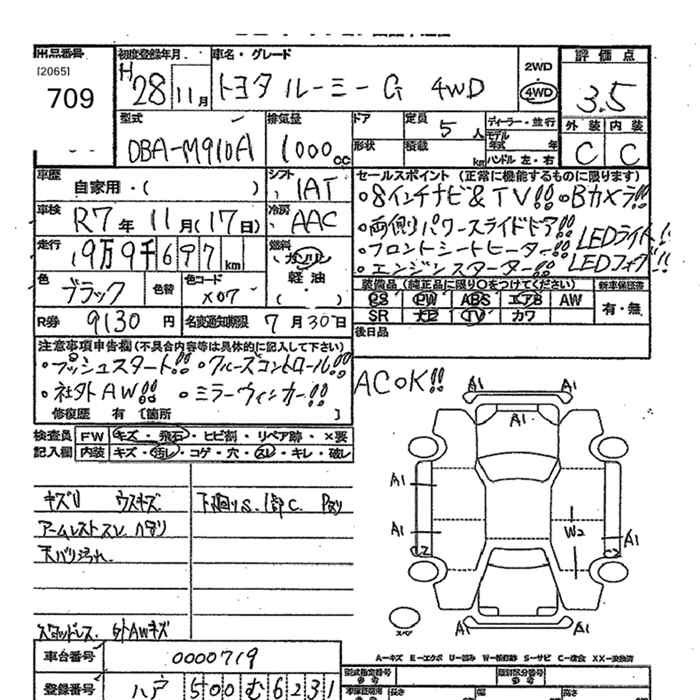 出品番号
[2065]
709
初度登録年月 H28 11月
車名・グレード
トヨタ ルーミー G 4WD
2WD
4WD
評価点
3.5
外装 内装
C C
型式
DBA-M910A
排気量
1000cc
ドア
形状
定員 5人
積載 km
ディーラー・並行
モデル年式 年
ハンドル 左・右
車歴
自家用・( )
シフト
IAT
車検 R7年 11月(17日)
冷房
AAC
走行 19万9千697km
燃料
ガソリン
軽油
( )
色 ブラック
色替
色コード X07
R券 9130円
名変通知期限 7月30日
セールスポイント(正常に機能するものに限ります)
・8インチナビ&TV!! ・Bカメラ!!
・両側パワースライドドア!!
・フロントシートヒーター!! LEDライト!!
・エンジンスターター!! LEDフォグ!!
装備品(純正品に限り○をつけてください)
新車保証書
PS PW ABS エアB AW
有・無
SR ナビ TV カワ
後日品
注意事項申告欄(不具合内容等は具体的に記入して下さい)
・プッシュスタート!! ・クルーズコントロール!!
・社外AW!! ・ミラーウィンカー!!
修復歴 有 〔箇所 〕
ACOK!!
検査員記入欄
FW キズ・飛石・ヒビ割・リペア跡・×要
内装 キズ・汚レ・コゲ・穴・スレ・キレ・破レ
キズU ウスキズ
下廻りS. 1部C.
アームレストスレ ハガリ
天バリ汚れ
スタッドレス. 外AWキズ
A1 A1
A1
A1
A1
W2
A1
A1 A1
スペア
A-キズ E-エクボ U-凹み W-補修跡 S-サビ C-腐食 XX-交換済
車台番号 0000719
型式指定番号
類別区分番号
登録番号 八戸 500 む 6231
長さ 幅 高さ